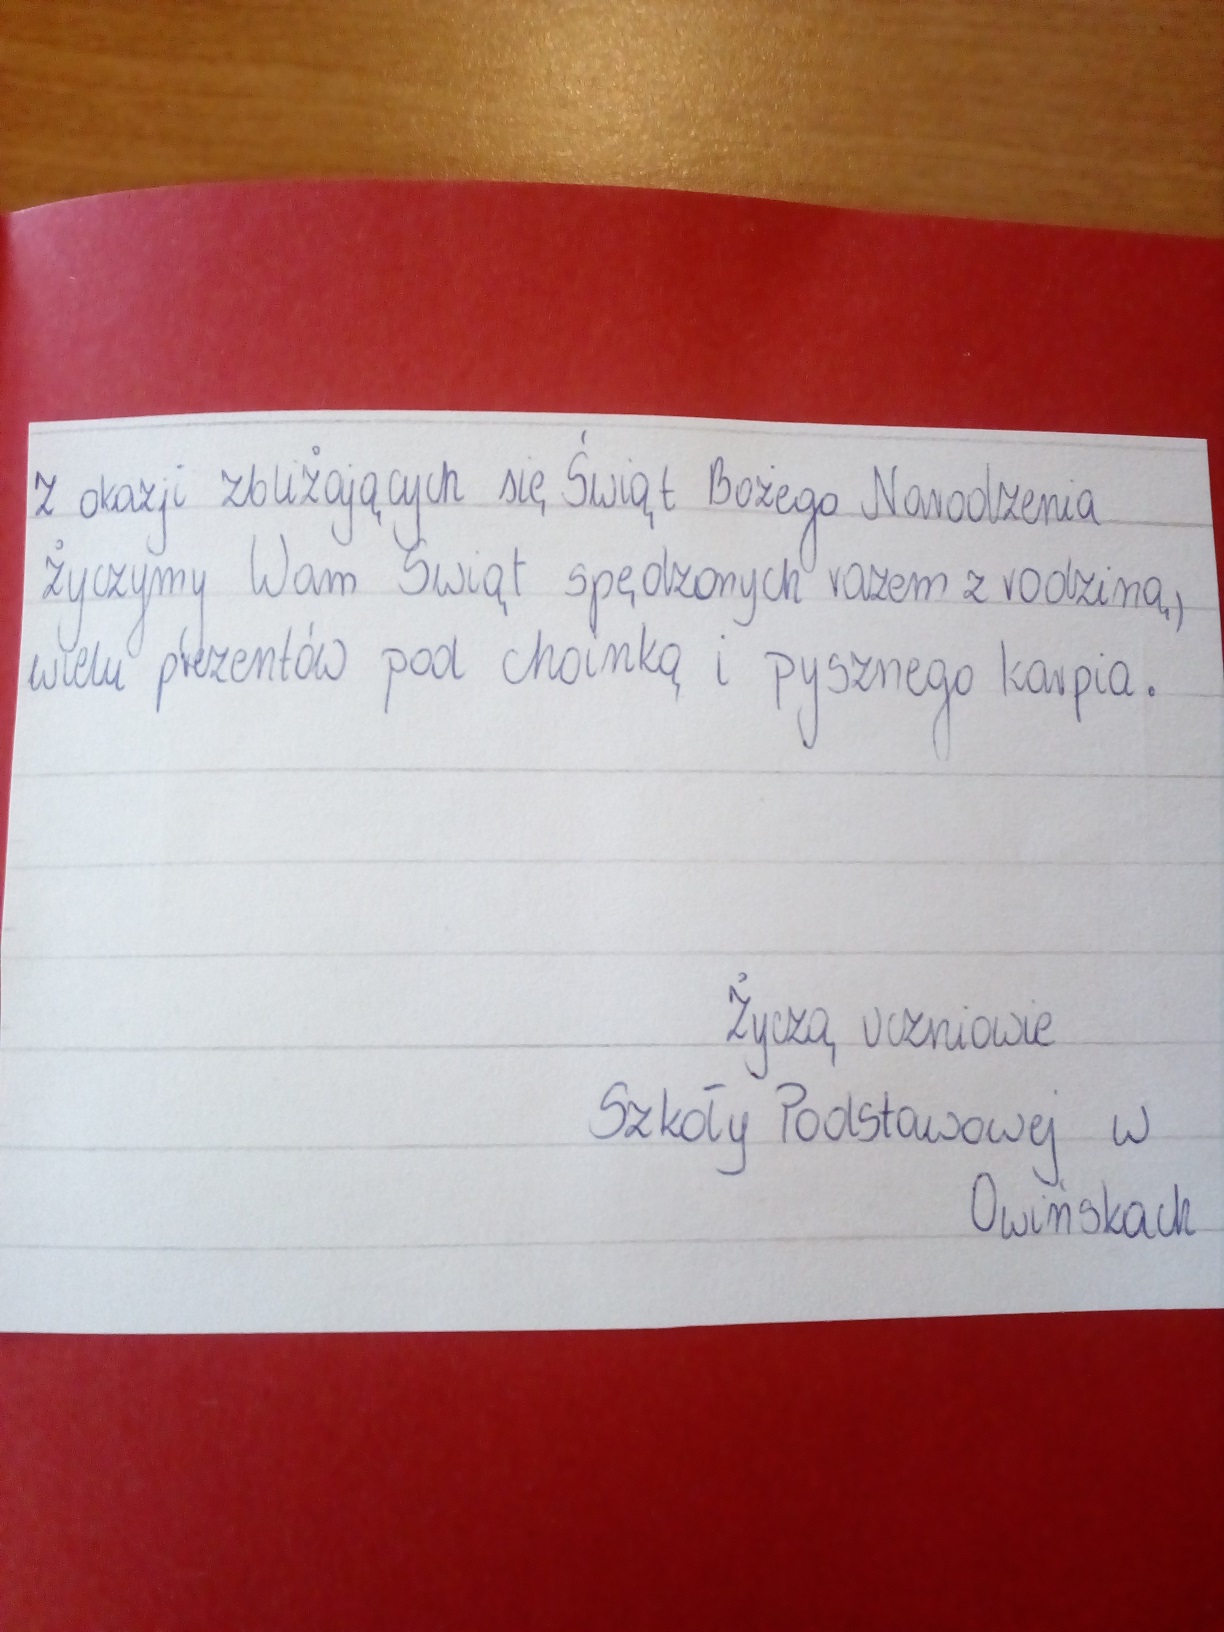 Z okazji zbliżających się Świąt Bożego Narodzenia
życzymy Wam Świąt spędzonych razem z rodziną,
wielu prezentów pod choinką i pysznego karpia.
Życzą uczniowie
Szkoły Podstawowej w
Owińskach